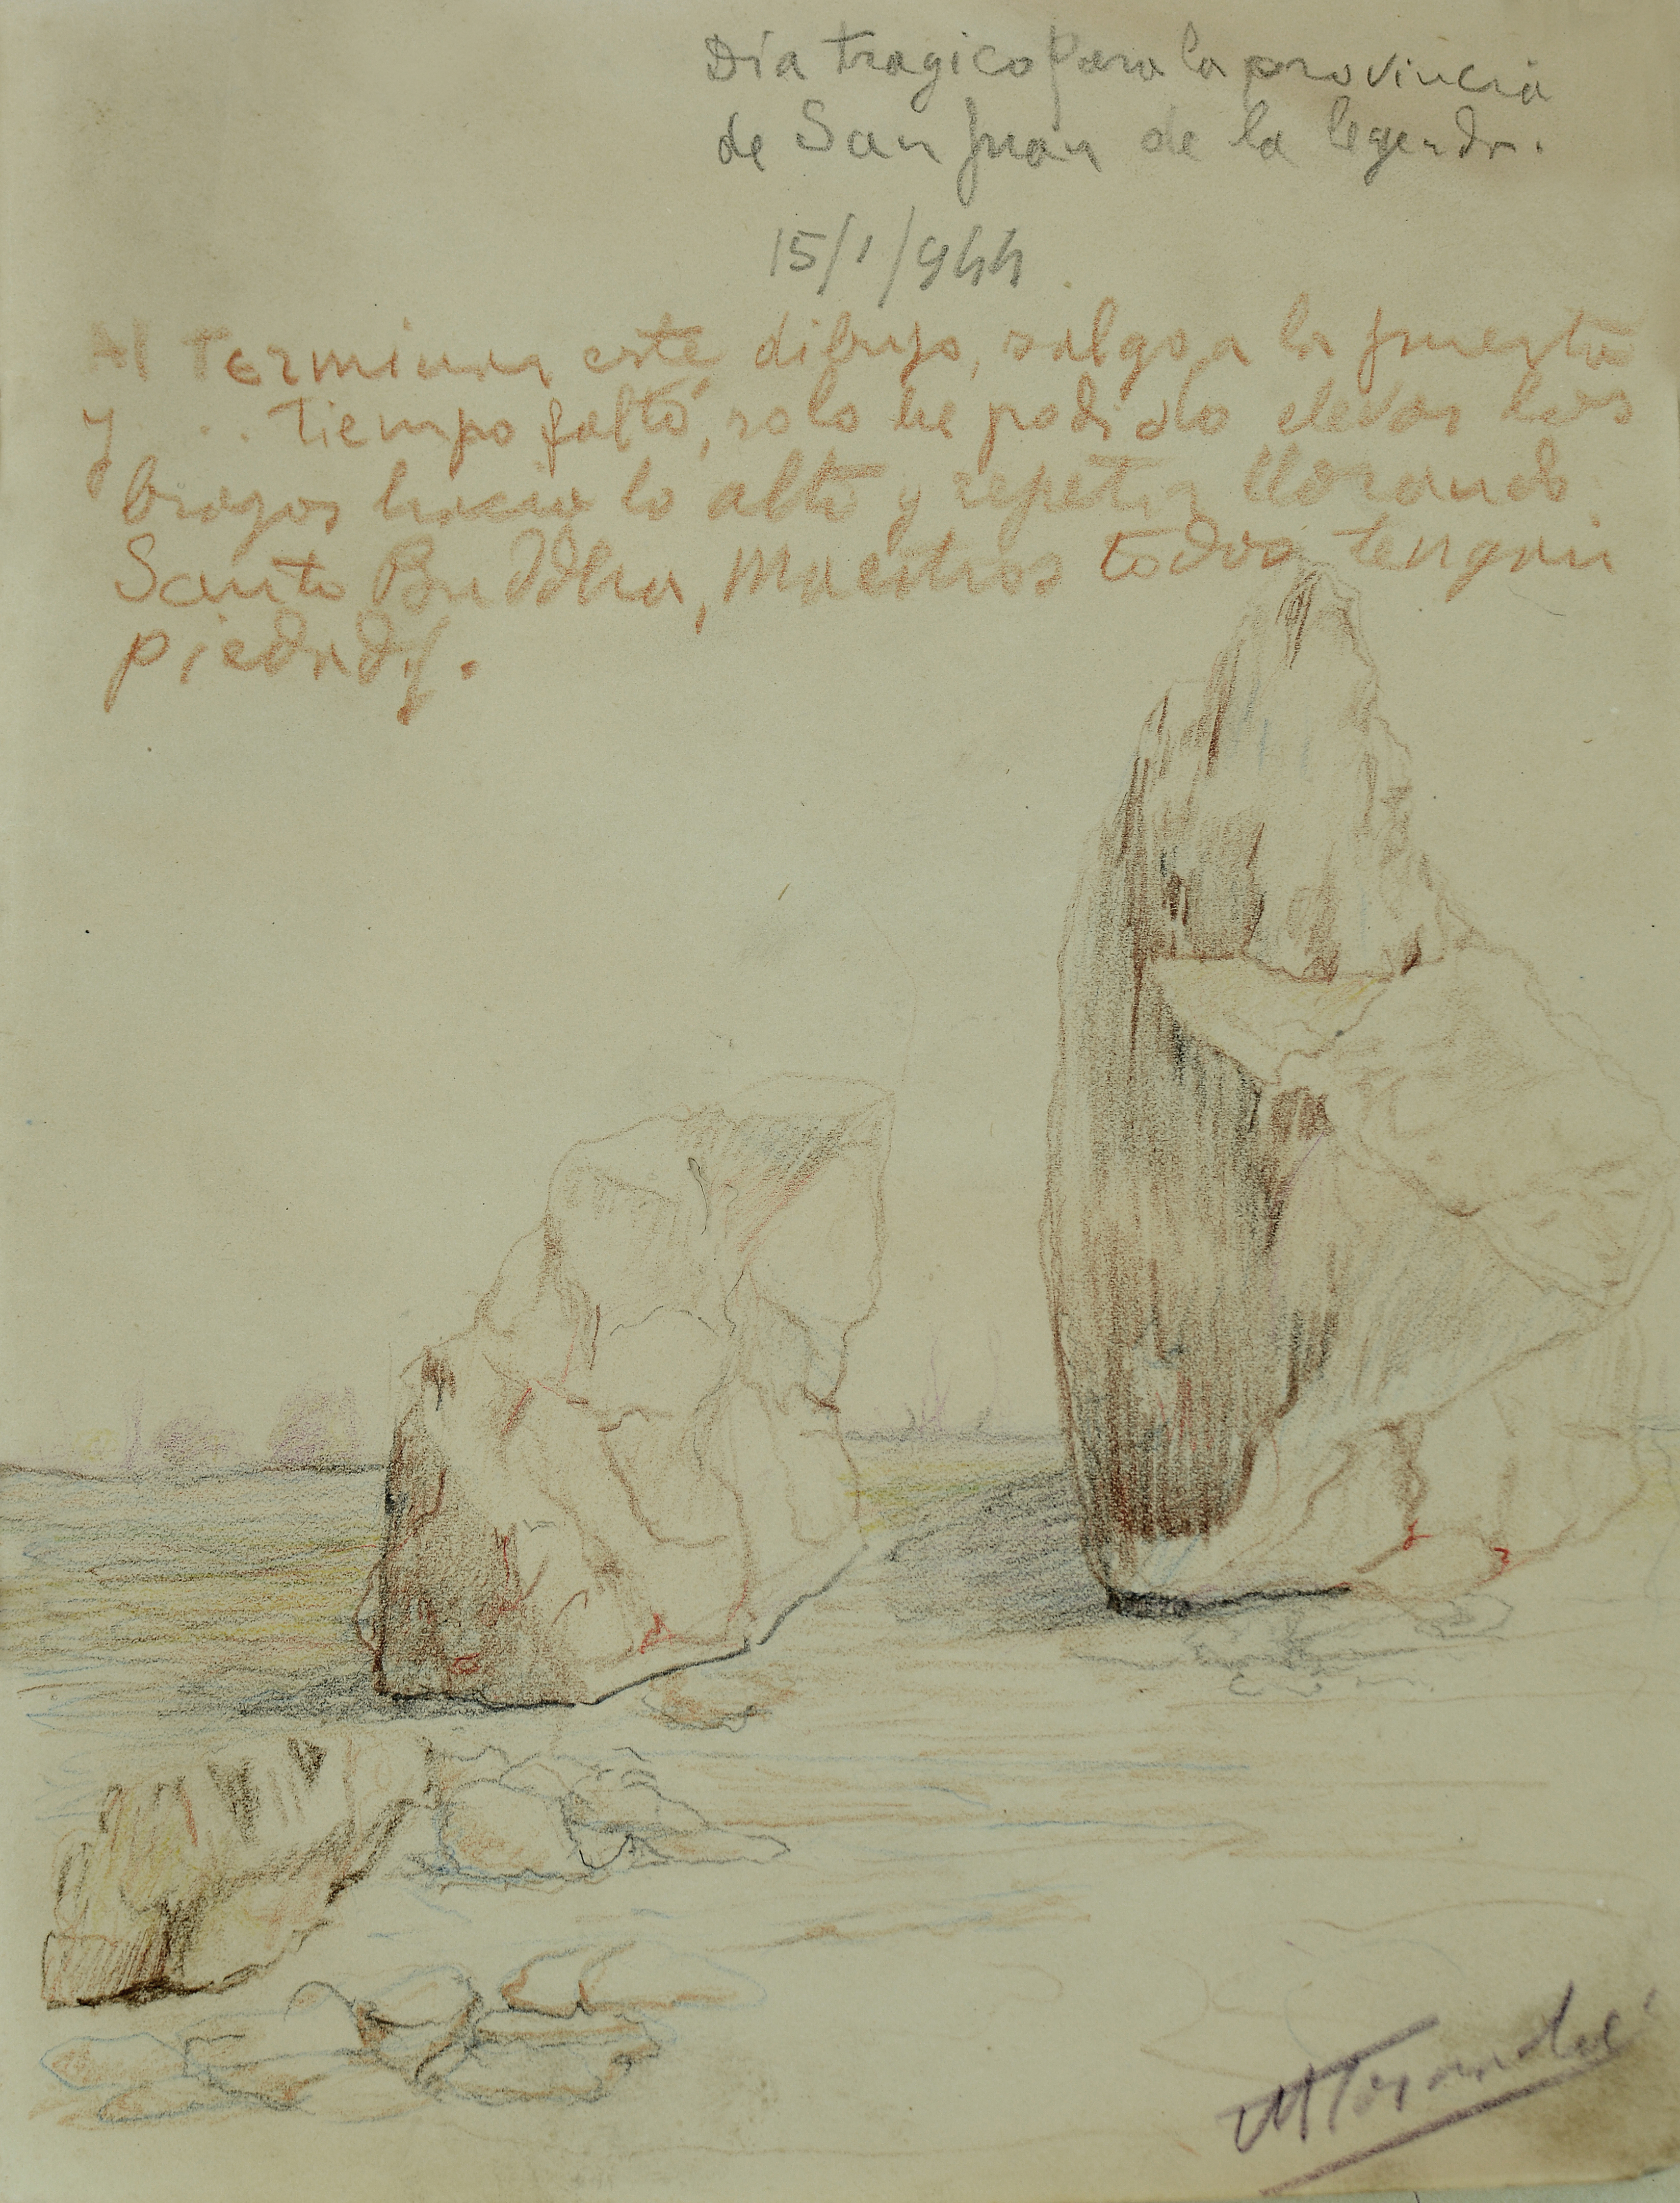 Día tragico para la provincia
de San Juan de la legenda.
15/1/944
Al Terminar este dibujo, salgo a la puerta
y . . tiempo faltó, solo he podido elevar los
brazos hacia lo alto y repetir llorando
Santo Buddha, Maestros todos tengan
piedad.